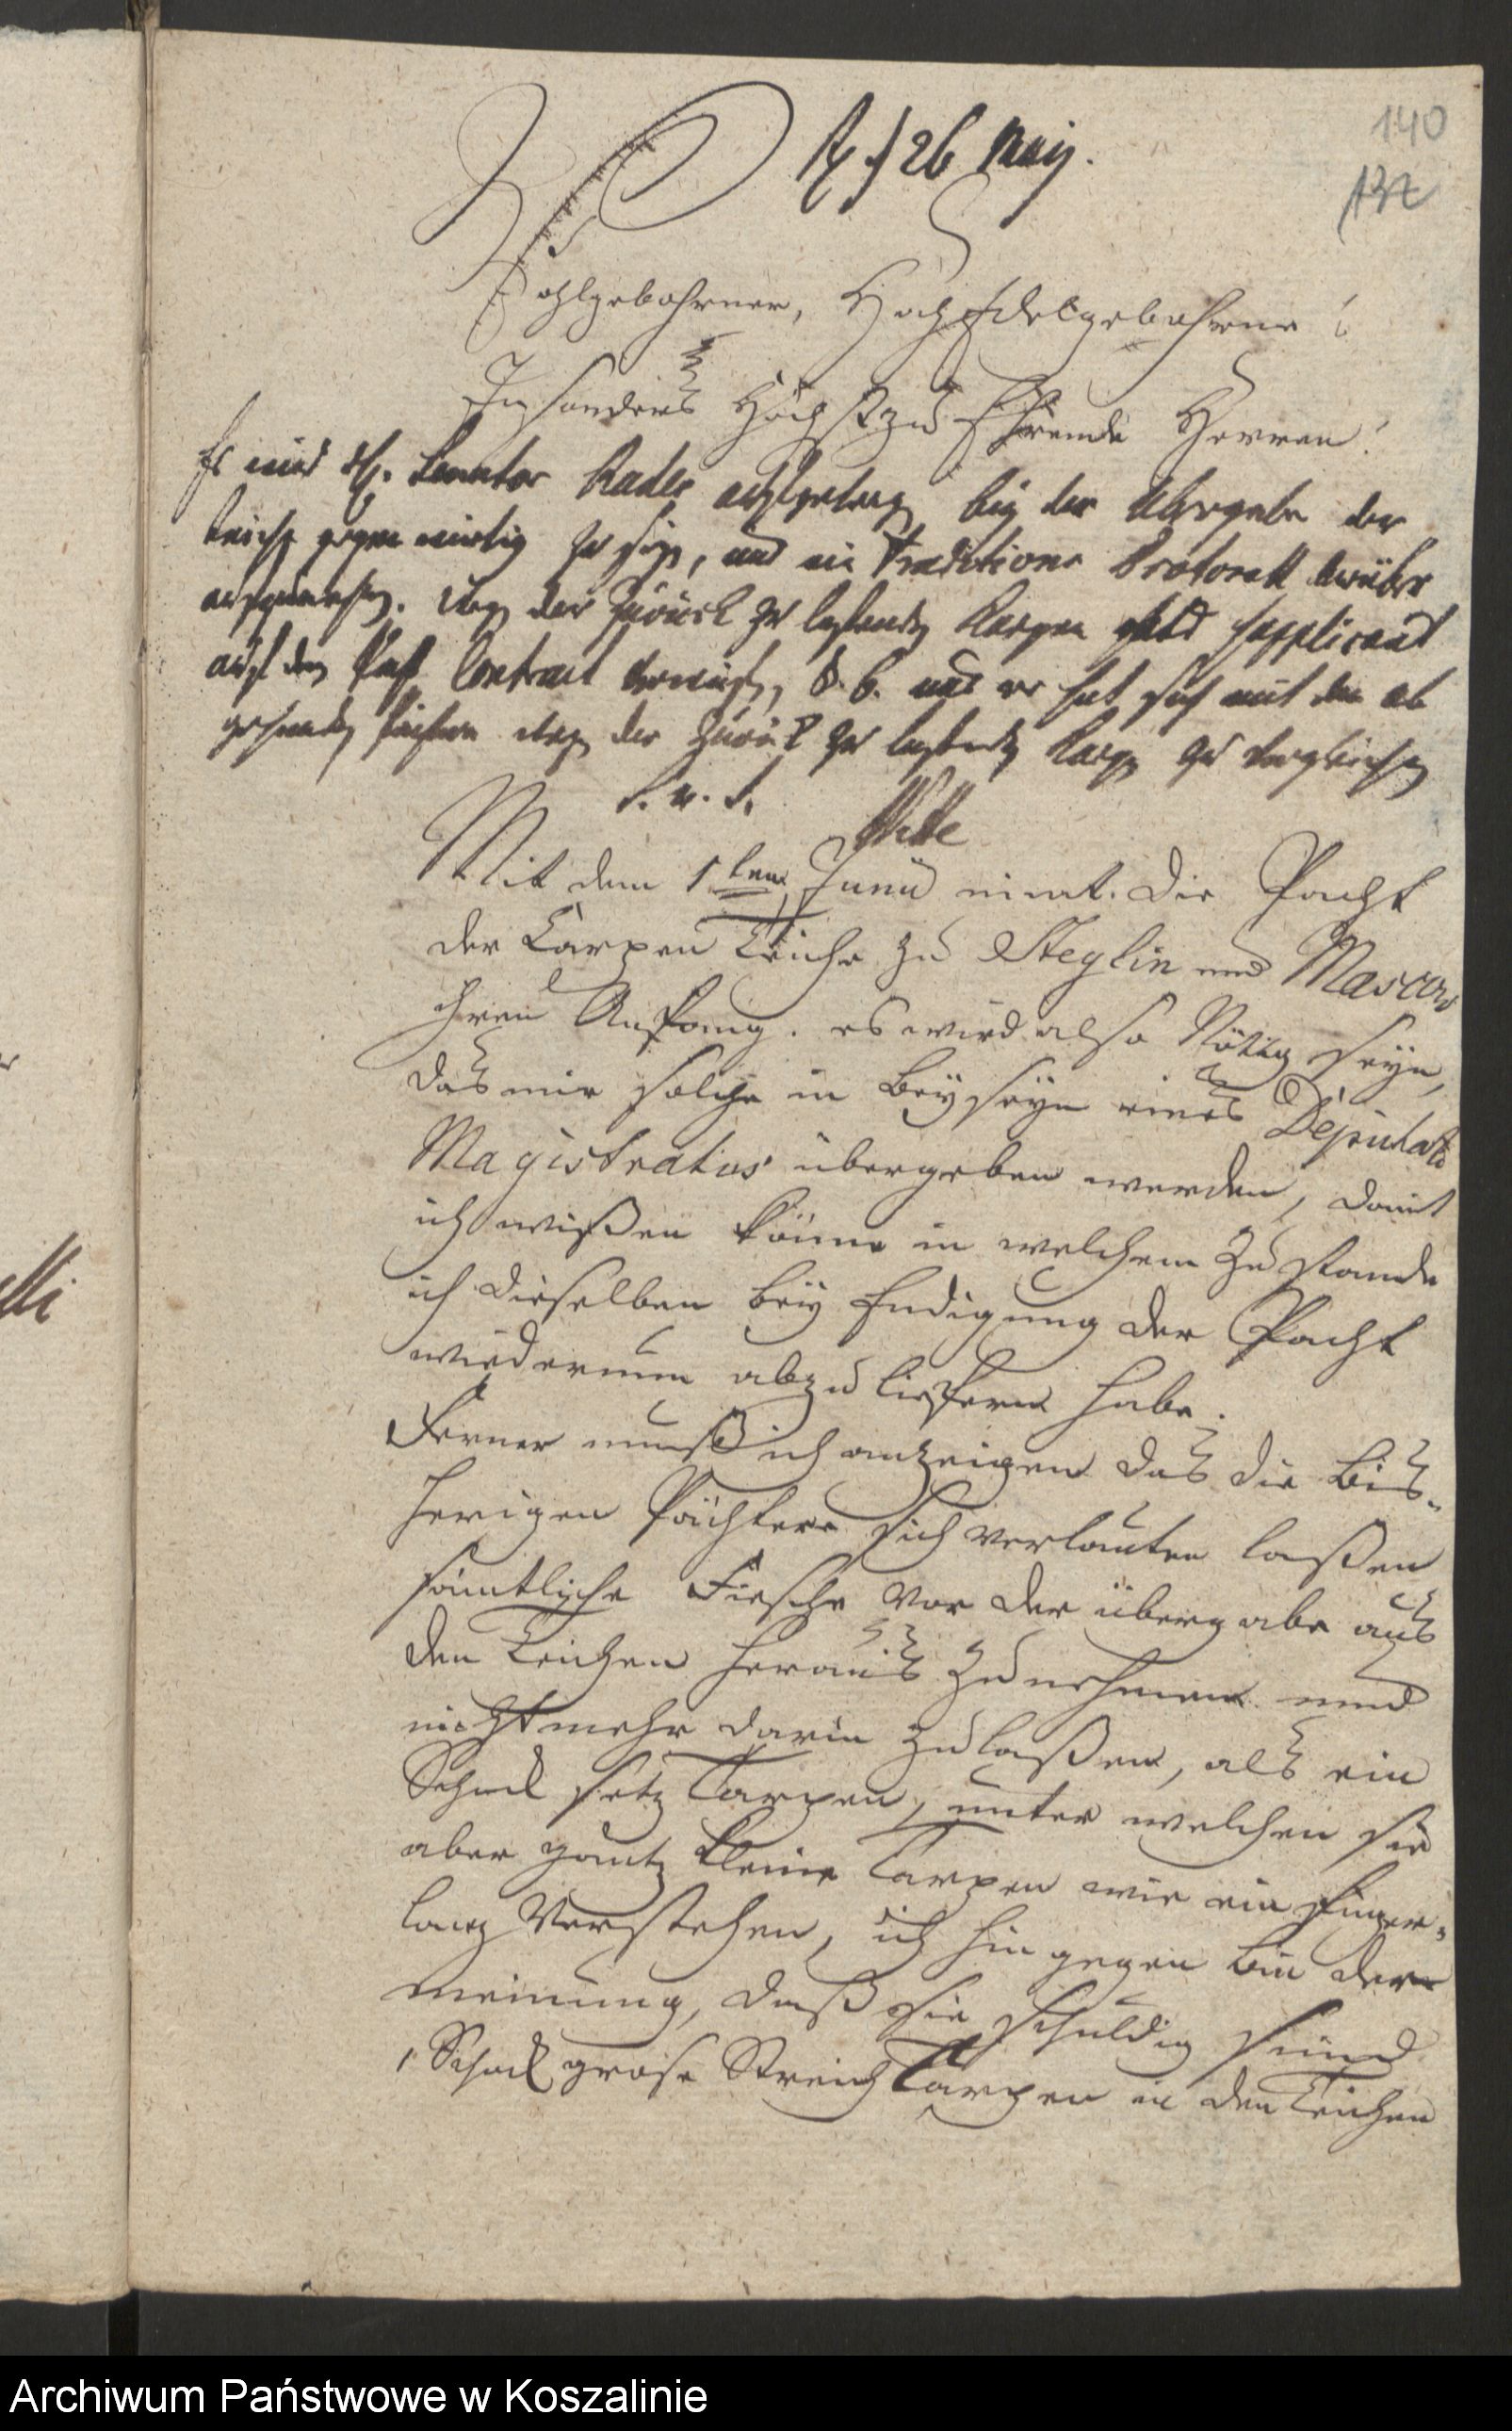 140
132
26 Maij.
Wohlgebohrner, HochEdelgebohrne
Insonders Höchstzu Ehrende Herren!
Es wird H. Senator Rades aufgetragen, bey der Übergabe der
Teiche gegenwärtig zu seyn, und ein Traditions Protocoll darüber
aufzunehmen. Wegen der zurück zu laßenden Karpen wird Supplicant
auf den Pacht Contract verwiesen, und er hat sich mit den ab
gehenden Pächtern wegen der zurück zu laßenden Karpen zu vergleichen
Mit dem 1ten Junii nimt die Pacht
der Carpen Teiche zu Steglin und Mascow
ihren Anfang. es wird also Nötig seyn,
das mir solche in Beyseyn eines Deputati
Magistratus übergeben werden, damit
ich wißen könne in welchem Zustande
ich dieselben bey Endigung der Pacht
wiederum abzuliefern habe.
Ferner muß ich anzeigen das die Bis-
herigen Pächtere sich verlauten laßen
sämtliche Fiesche vor der übergabe aus
den Teichen heraus zu nehmen und
nicht mehr darin zu laßen, als ein
Schock setz Carpen, unter welchen sie
aber gantz kleine Carpen wie ein finger-
lang Verstehen, ich hingegen bin der
meinung, daß sie schuldig sind
1 Schock grose Streich Carpen in den Teichen
Archiwum Państwowe w Koszalinie